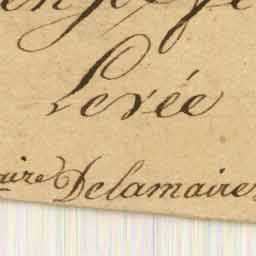 Lovée
aire Delamaire